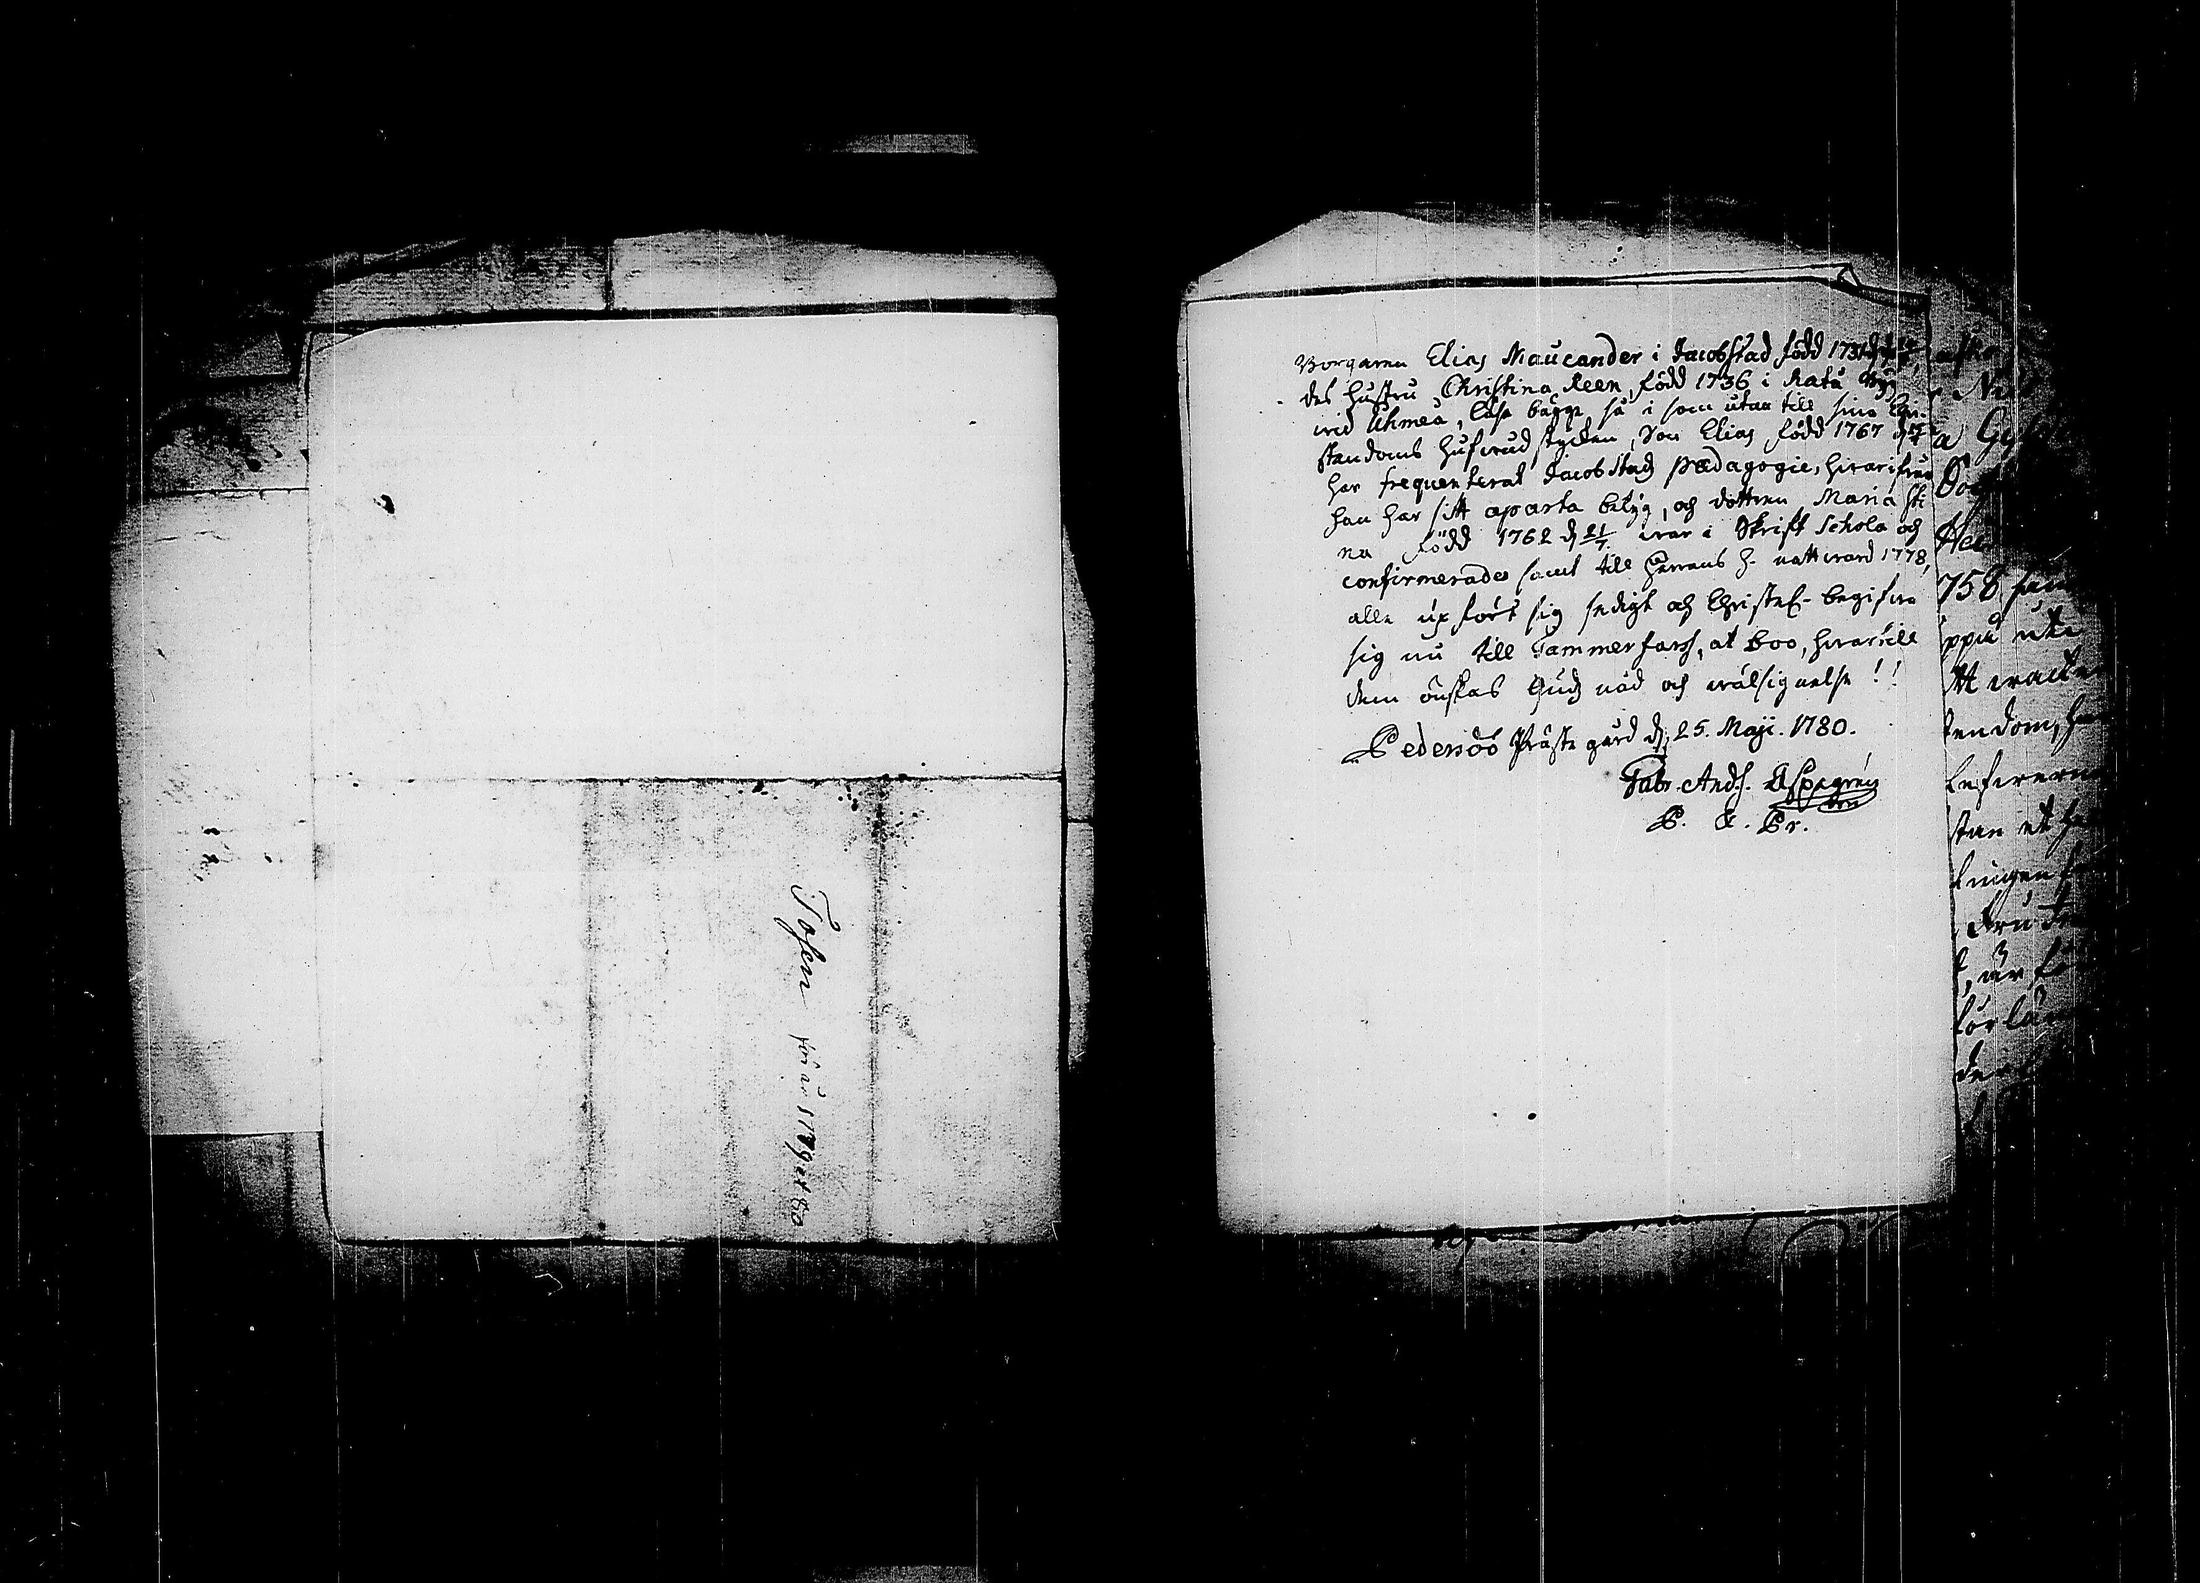 Tosen för år 1779 et 80
Borgaren Elias Maucander i Jacobstad född 1731
des hustru Christina Reen, född 1736 i Ratu by
wid Uhmeå, läsa bägge så i som utan till sina Chri-
stendoms hufwud stycken, Son Elias född 1767 d
har frequenterat Jacobstads pædagogie, hwarifrån
han har sitt aparta betyg, och dottren Maria Sti
na född 1762 d 21/7 war i Skrift Schola och
confirmerades samt till Herrans H. nattward 1778,
alle upfört sig sedigt och Christel- begifwa
sig nu till Tammerfors, at boo, hwartill
dem önskas Guds nåd och wälsignelse!!
Pedersöö Prästegård d. 25. Maji. 1780.
Gabr. And. Aspegrén
P. &. Pr.
758
ppå
tt
tendom,
stan
lingen